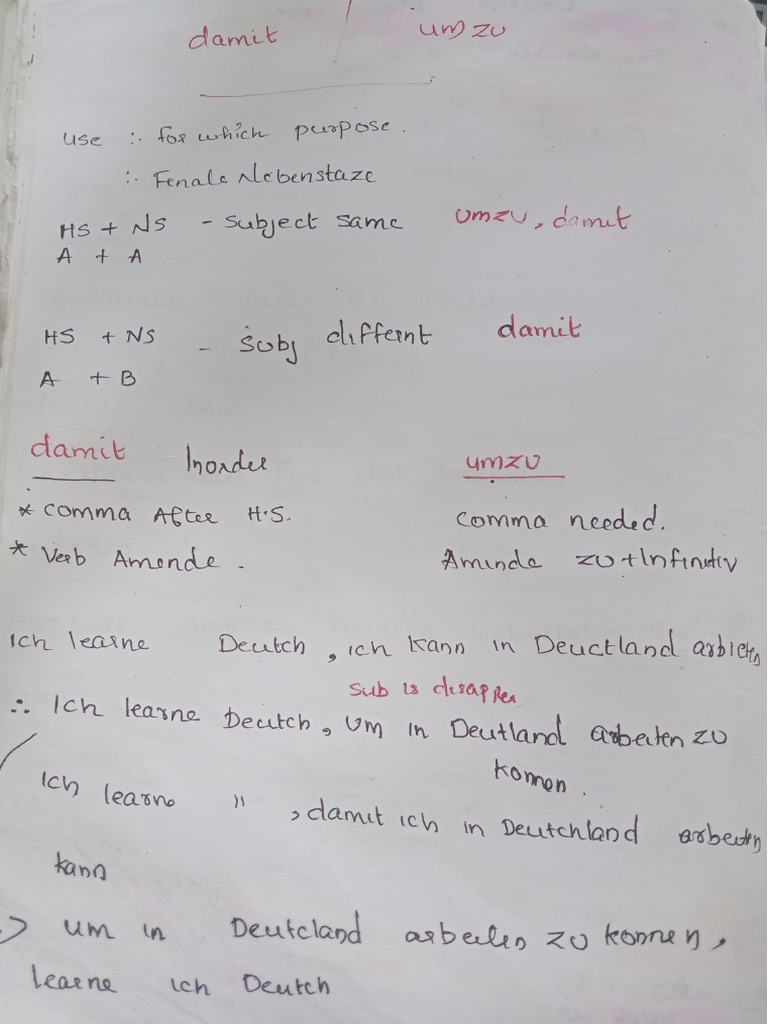 damit / um zu
use :- for which purpose.
:- Fenale Nebenstaze
HS + NS - Subject same umzu, damit
A + A
HS + NS - Subj differnt damit
A + B
damit Inorder umzu
* comma After H.S. comma needed.
* Verb Amende. Aminde zu + Infinitiv
Ich learne Deutch, ich kann in Deuctland arbieten
sub is disapper
∴ Ich learne Deutch, um in Deutland arbeiten zu
konnen.
Ich learne " , damit ich in Deutchland arbeiten
kann
um in Deutcland arbeiten zu konnen,
learne ich Deutch